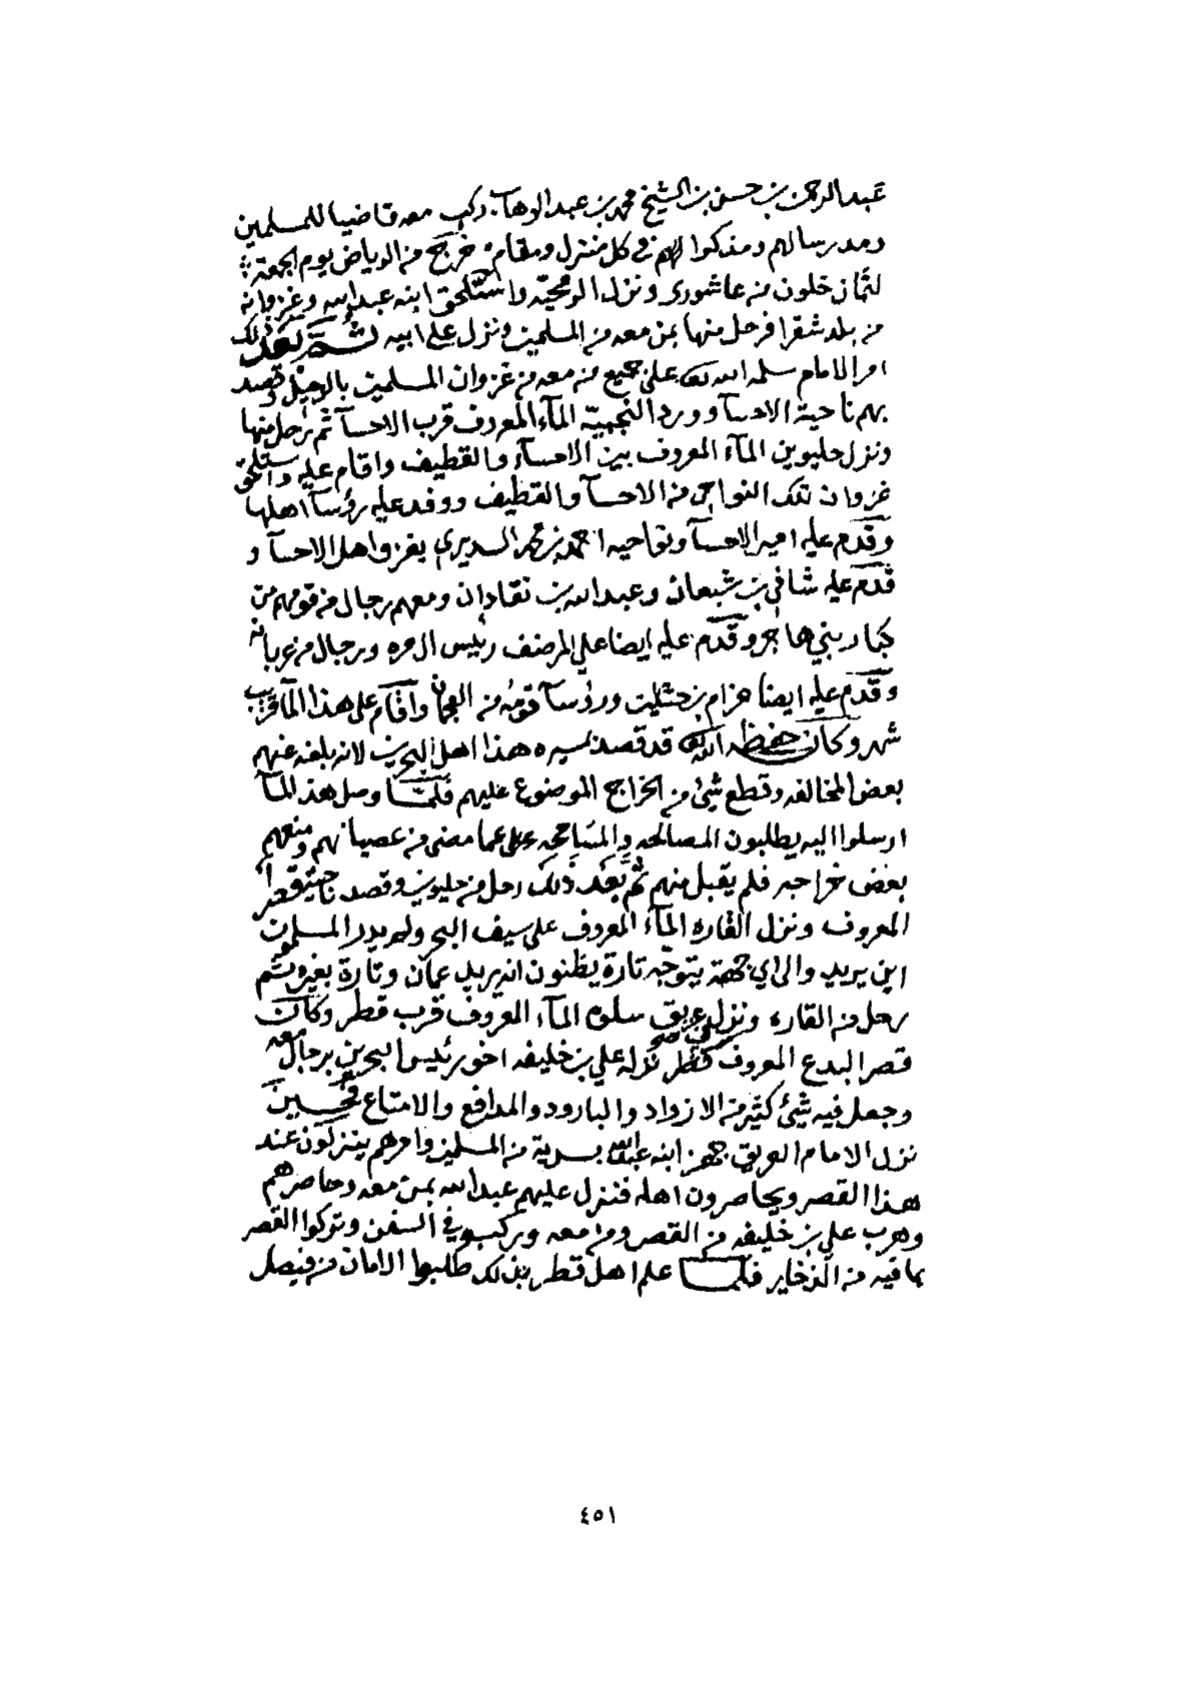 عبدالرحمن بن حسن بن الشيخ محمد بن عبدالوهاب ركب معه قاضيا للمسلمين
ومدرسا لهم ومذكوا لهم في كل منزل ومقام خرج من الرياض يوم الجمعة
لثمان خلون من عاشوري ونزل الرمحيه واستلحق ابنه عبدالله وغزوانه
من بلد شقرا فرحل منها بمن معه من المسلمين ونزل على ابيه ثم بعد ذلك
امر الامام سلمه الله تعالى على جميع من معه من غزوان المسلمين بالرحيل وقصد
بهم ناحية الاحسآ وورد النجبية المآء المعروف قرب الاحسآ ثم رحل منها
ونزل حليوين المآء المعروف بين الاحسآء والقطيف واقام عليه واستلحق
غزوان تلك النواحي من الاحسآ والقطيف ووفد عليه رؤسآ اهلها
وقدم عليه امير الاحسآ ونواحيه احمد بن محمد السديري بغزو اهل الاحسآ و
قدم عليه شافي بن شبعان وعبدالله بن نقادان ومعهم رجال من قومهم من
كبار بني هاجر وقدم عليه ايضا علي المرضف رئيس ال مره ورجال من عربانه
وقدم عليه ايضا حزام بن حثلين ورؤسآ قومه من العجمان واقام على هذا المآ قريب
شهر وكان حفظه الله تعالى قد قصد بمسيره هذا اهل البحرين لانه بلغه عنهم
بعض المخالفه وقطع شئ من الخراج الموضوع عليهم فلمّا وصل هذ المآ
ارسلوا اليه يطلبون المصالحه والمسامحه على عما مضى من عصيانهم ومنعهم
بعض خراجه فلم يقبل منهم ثم بعد ذلك رحل من حليوين وقصد ناحية قطر
المعروف ونزل القاره المآء المعروف على سيف البحر ولم يدر المسلمون
اين يريد والى اي جهة يتوجه تارة يظنون انه يريد عمان وتارة بغيره ثم
رحل من القاره ونزل عريق سلوه المآء المعروف قرب قطر وكان
قصر البدع المعروف في قطر نزله علي بن خليفه اخو رئيس البحرين برجال معه
وجعل فيه شئ كثير من الازواد والبارود والمدافع والامتاع فحين
نزل الامام العريق جهز ابنه عبدالله بسرية من المسلمين وامرهم ينزلون عند
هذا القصر ويحاصرون اهله فنزل عليهم عبدالله بمن معه وحاصرهم
وهرب علي بن خليفه من القصر ومن معه وركبو في السفن وتركوا القصر
بما فيه من الذخاير فلمّا علم اهل قطر بذلك طلبوا الامان من فيصل
٤٥١